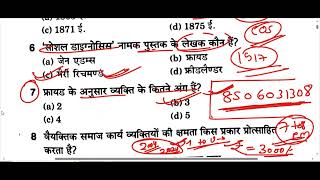 (c) 1871 ई.
(d) 1875 ई.
COS
6 'सोशल डाइग्नोसिस' नामक पुस्तक के लेखक कौन हैं?
(a) जेन एडम्स
(b) फ्रायड
1517
(c) मैरी रिचमण्ड
(d) फ्रीडलैण्डर
7 फ्रायड के अनुसार व्यक्ति के कितने अंग हैं?
(a) 2
(b) 3
8506031308
(c) 4
(d) 5
8 वैयक्तिक समाज कार्य व्यक्तियों की क्षमता किस प्रकार प्रोत्साहित
करता है?
= 3000/-